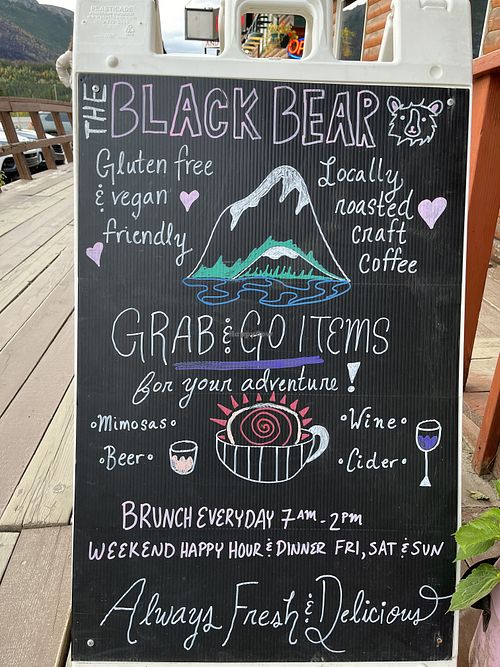 THE BLACK BEAR
Gluten free
& vegan
friendly
Locally
roasted
craft
coffee
GRAB & GO ITEMS
for your adventure!
•Mimosas•
•Beer•
•Wine•
•Cider•
BRUNCH EVERYDAY 7AM-2PM
WEEKEND HAPPY HOUR & DINNER FRI, SAT & SUN
Always Fresh & Delicious